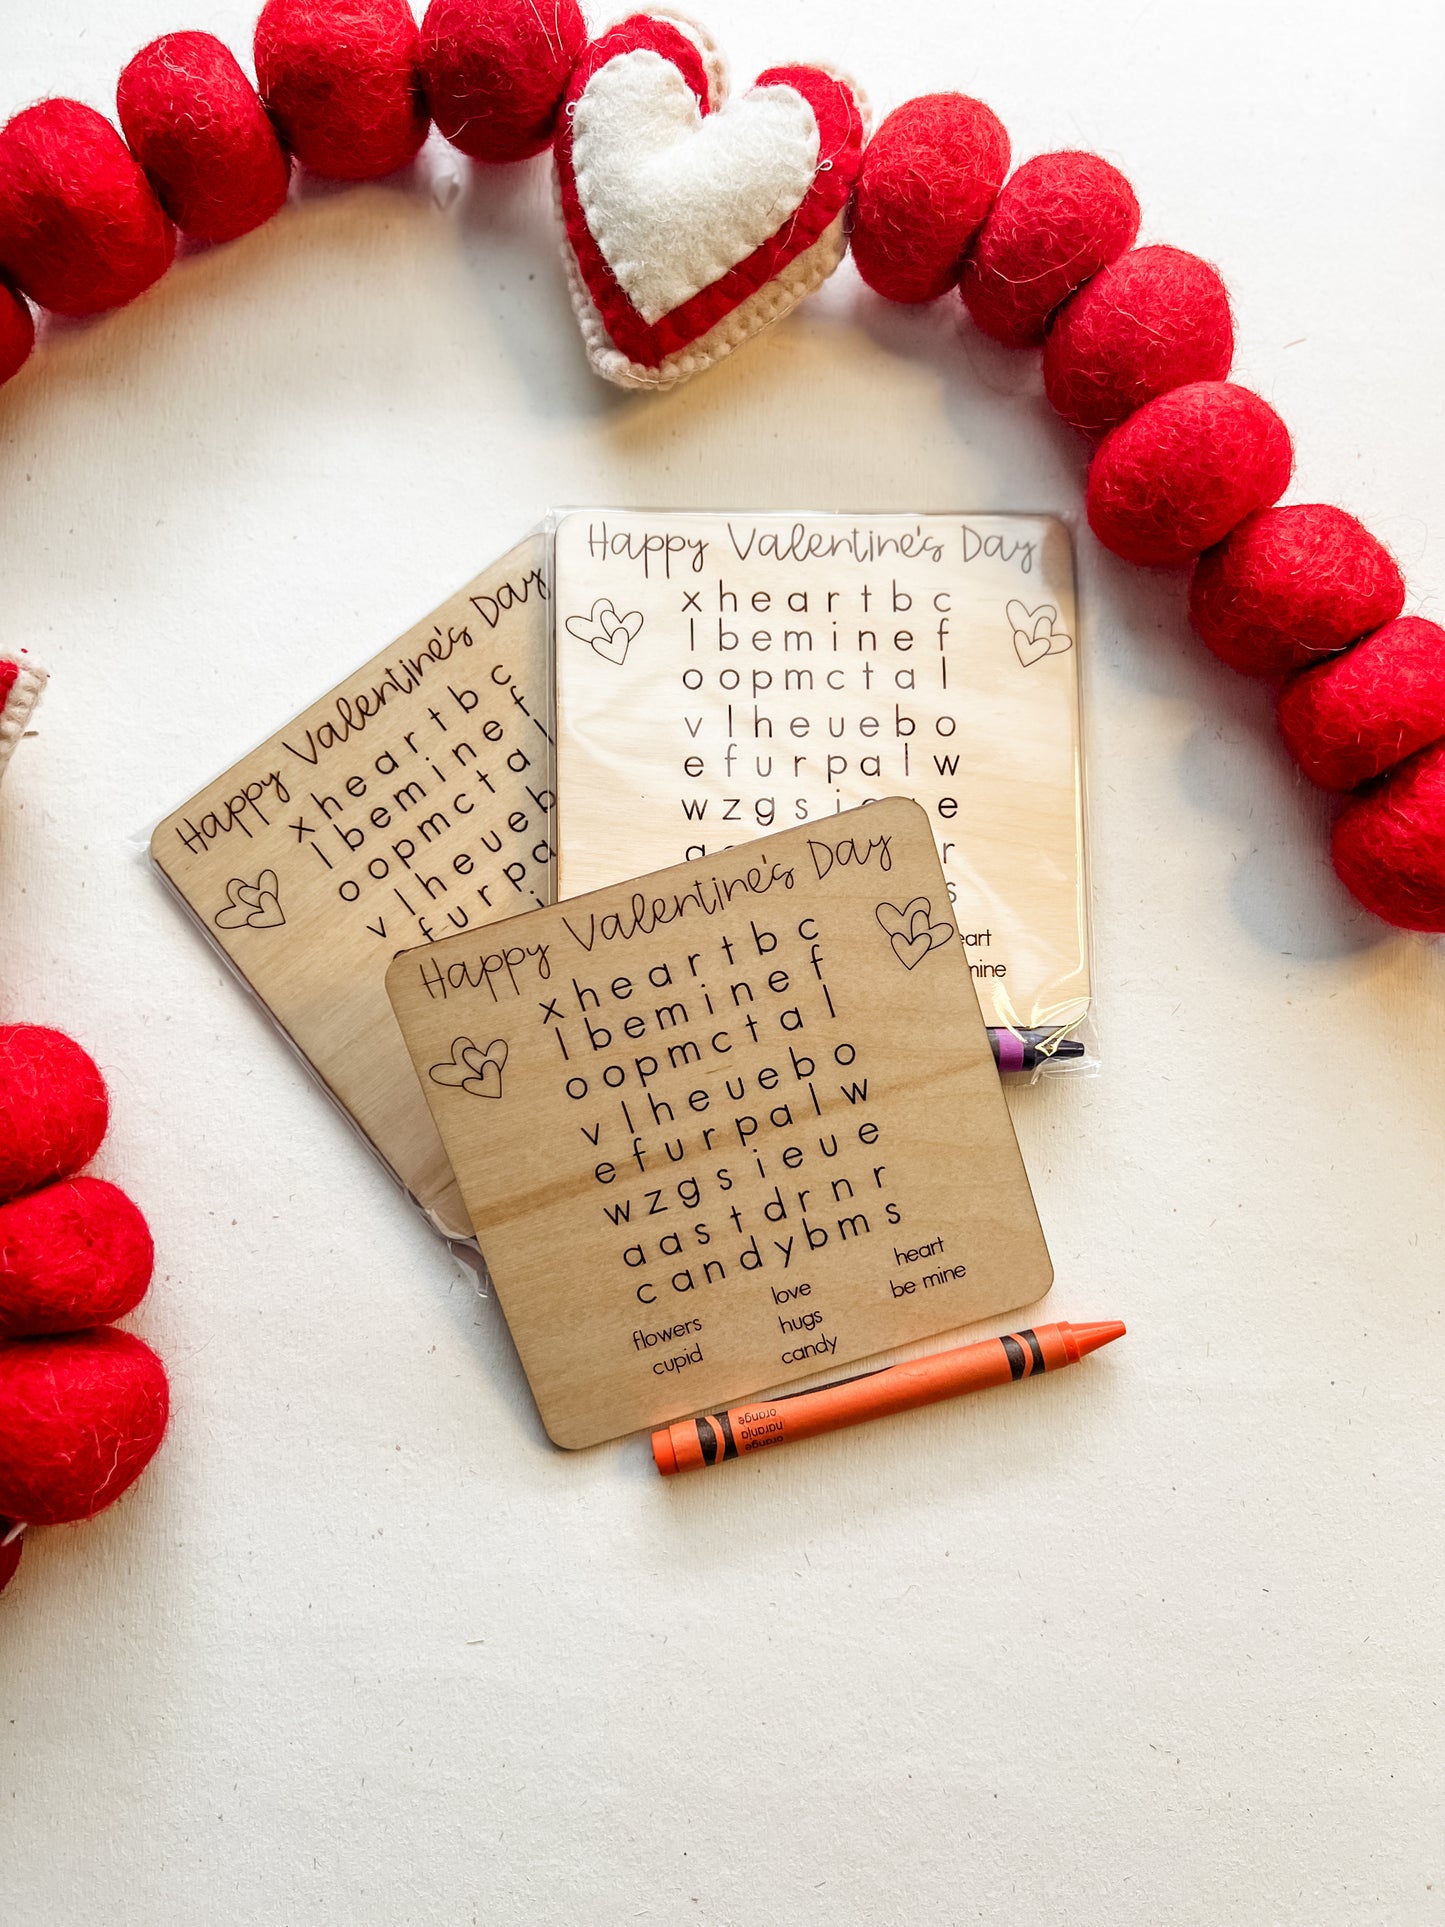 Happy Valentine's Day
x h e a r t b c
l b e m i n e f
o o p m c t a l
v l h e u e b o
e f u r p a l w
w z g s i e
Happy Valentine's Day
x h e a r t b c
l b e m i n e f
o o p m c t a l
v l h e u e b
f u r p a
Happy Valentine's Day
x h e a r t b c
l b e m i n e f
o o p m c t a l
v l h e u e b o
e f u r p a l w
w z g s i e u e
a a s t d r n r
c a n d y b m s
flowers love heart
cupid hugs be mine
candy
orange
naranja
orange